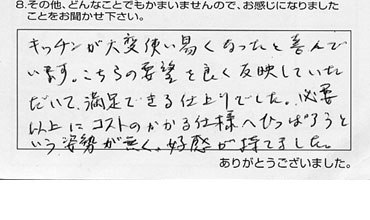 8.その他、どんなことでもかまいませんので、お感じになりました
ことをお聞かせ下さい。
キッチンが大変使い易くなったと喜んで
います。こちらの要望を良く反映していた
だいて、満足できる仕上りでした。必要
以上にコストのかかる仕様へひっぱろうと
いう姿勢が無く、好感が持てました。
ありがとうございました。